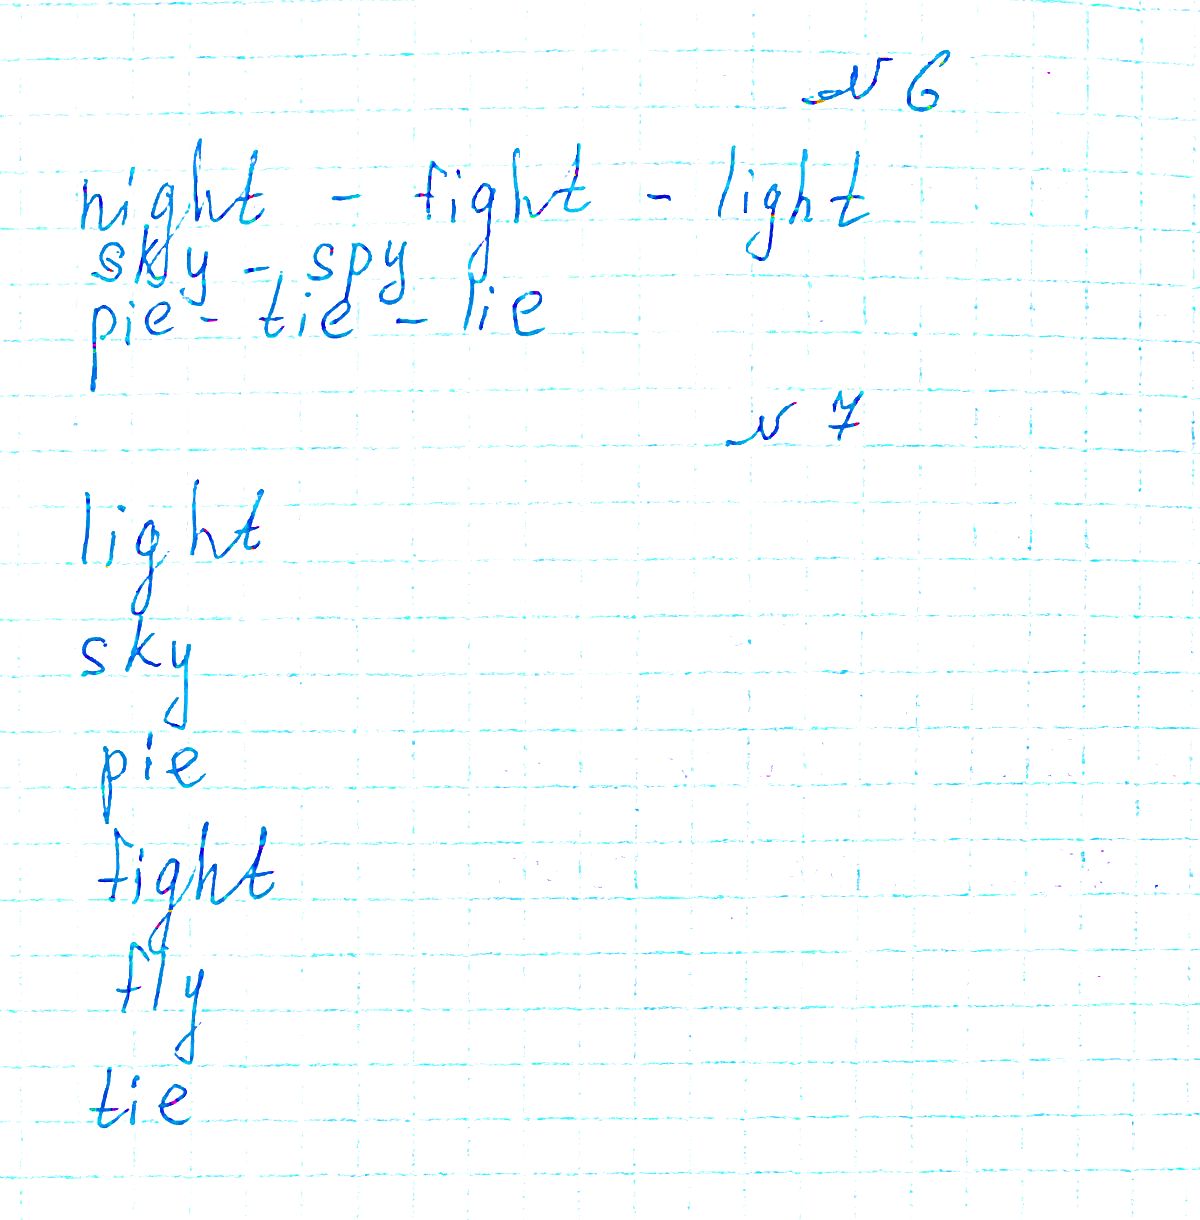 № 6
night - fight - light
sky - spy
pie - tie - lie
№ 7
light
sky
pie
fight
fly
tie